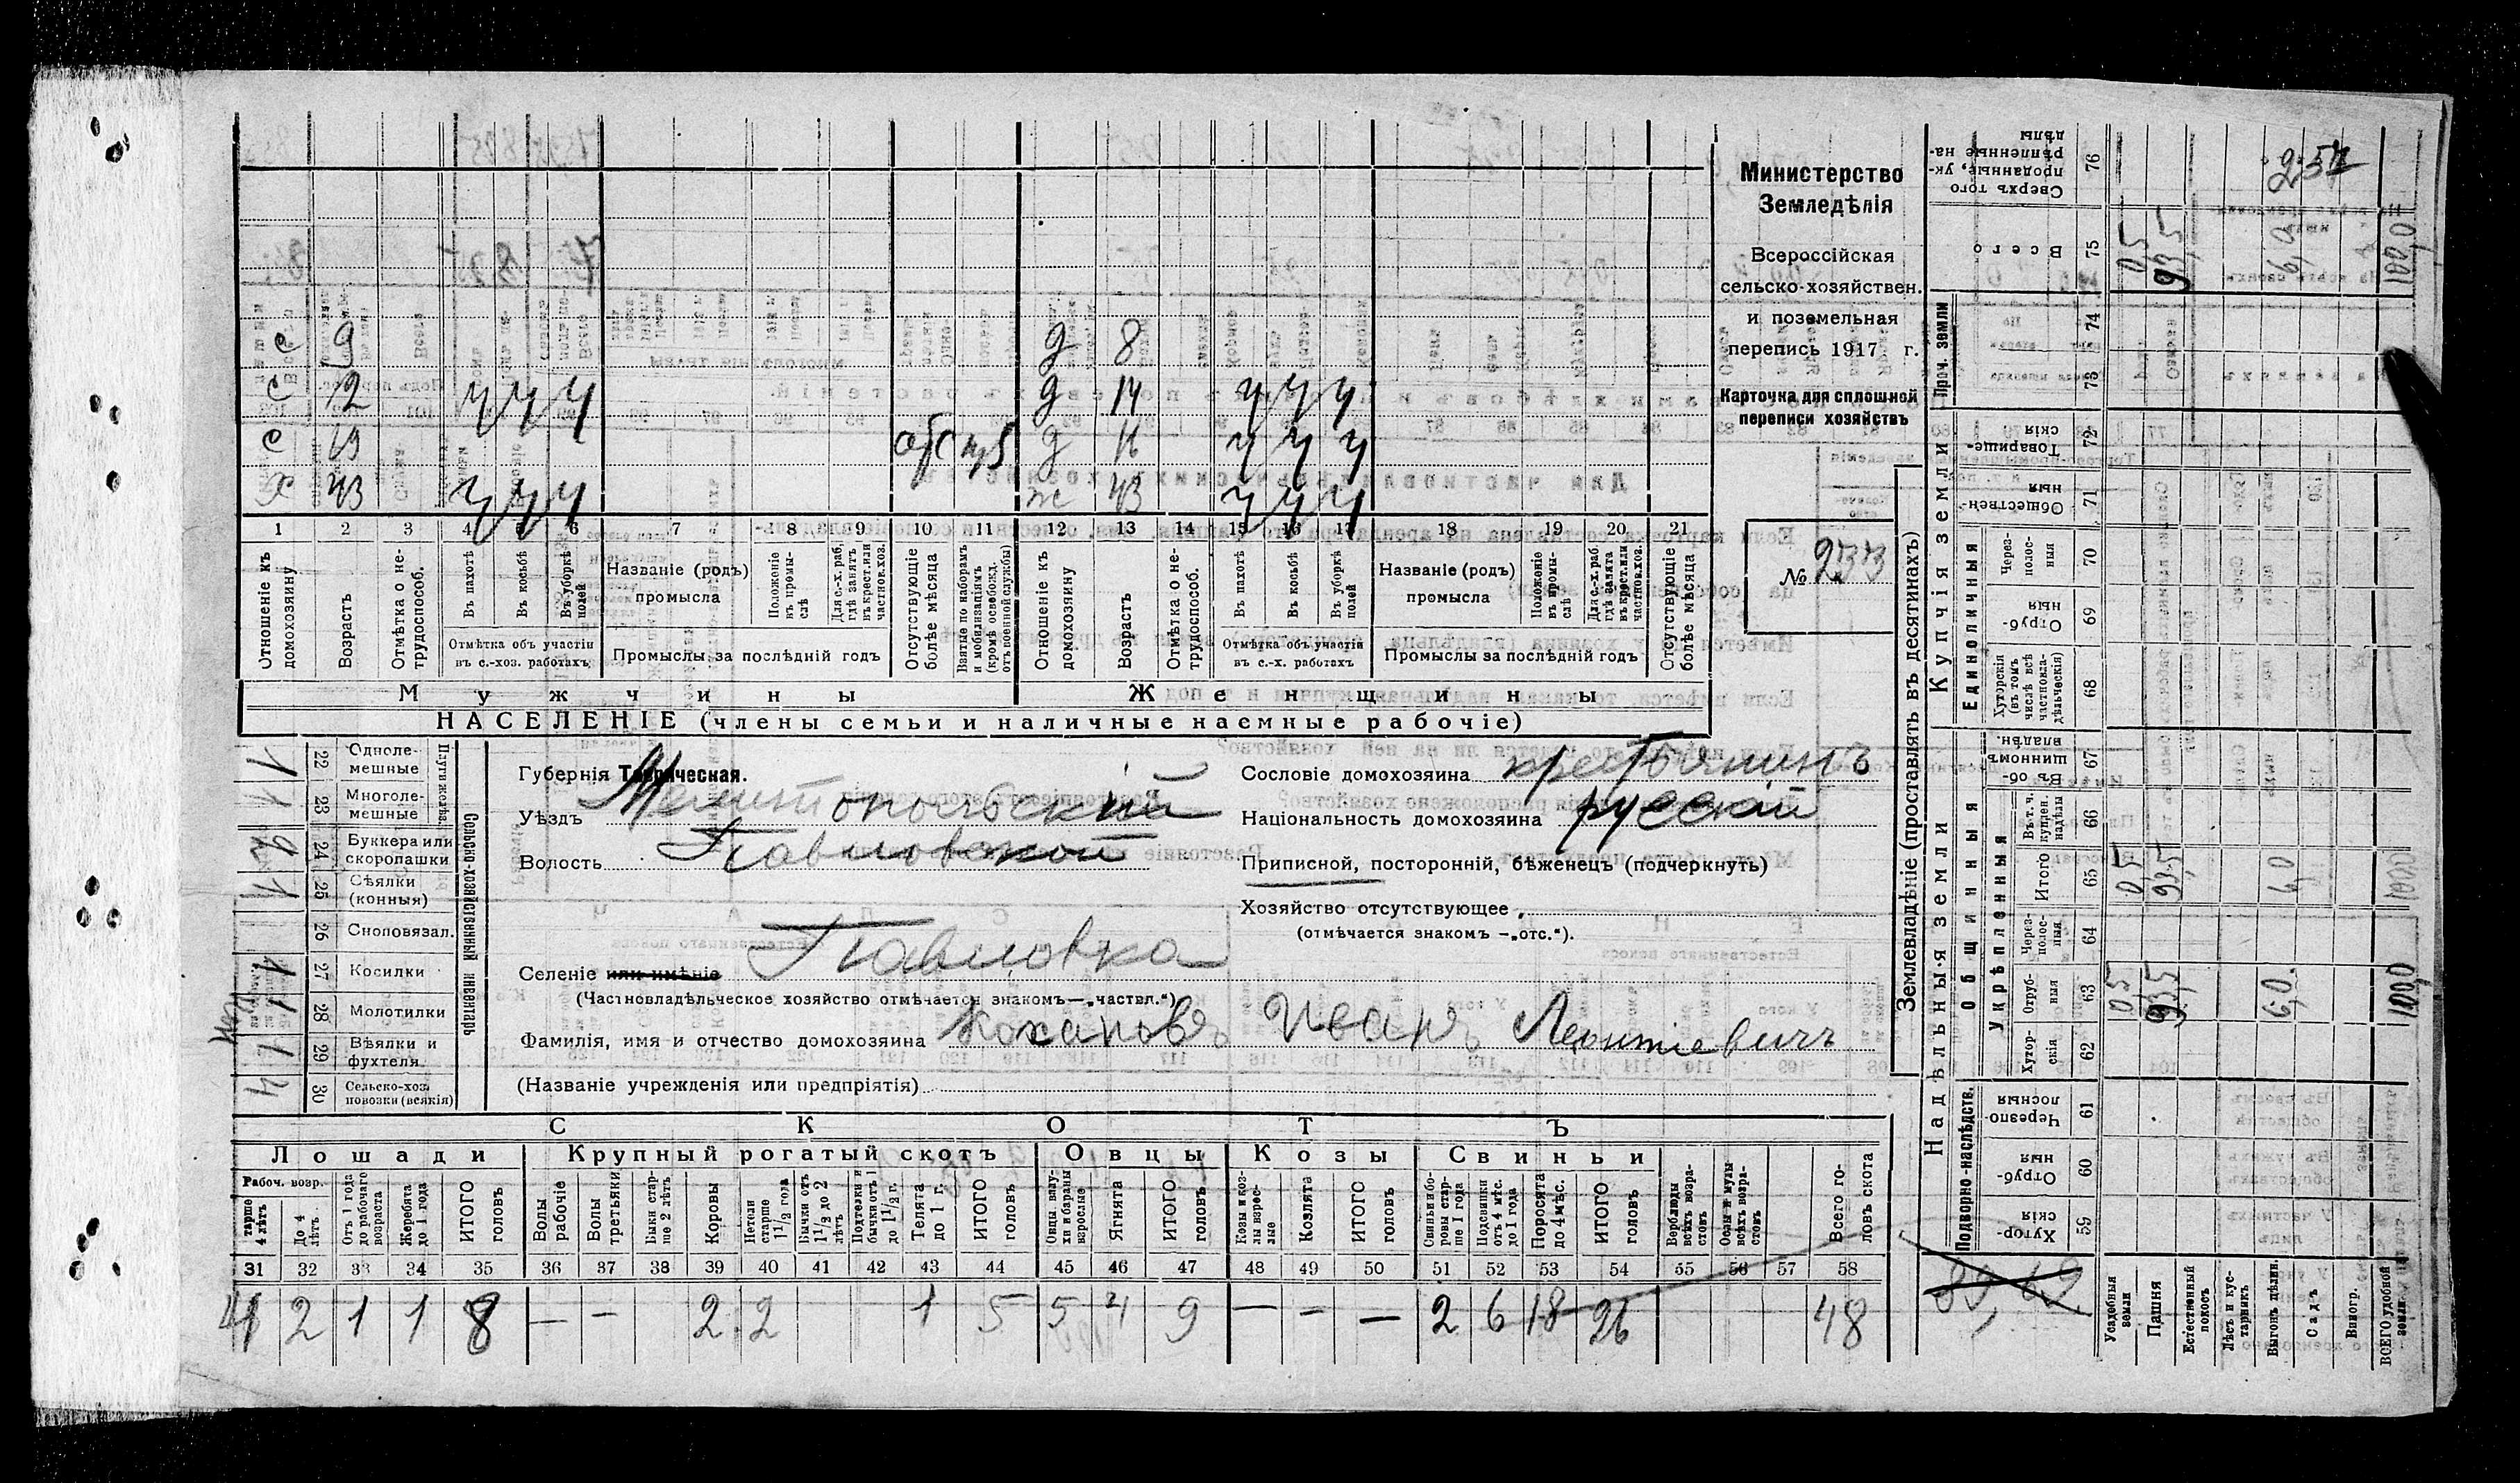 с 9 д 8
с 12 ч ч ч д 14 ч ч ч
с 19 отс моб д 16 ч ч ч
х 43 ч ч ч ж 43 ч ч ч
1 2 3 4 5 6 7 8 9 10 11 12 13 14 15 16 17 18 19 20 21
Отношеніе къ домохозяину.
Возрастъ
Отмѣтка о не-трудоспособ.
Въ пахотѣ
Въ косьбѣ
Въ уборкѣ полей
Отмѣтка объ участіи
въ с.-хоз. работахъ
Названіе (родъ)
промысла
Положеніе въ промы-слѣ
Для с.-х. раб, гдѣ занятъ въ крест. или частнов. хоз.
Промыслы за послѣдній годъ
Отсутствующіе болѣе мѣсяца
Взятые по наборамъ и мобилизаціямъ (кромѣ освобожд. отъ военной службы)
Отношеніе къ домохозяину
Возрастъ
Отмѣтка о не-трудоспособ.
Въ пахотѣ
Въ косьбѣ
Въ уборкѣ полей
Отмѣтка объ участіи
въ с.-х. работахъ
Названіе (родъ)
промысла
Положеніе въ промы-слѣ
Для с.-х. раб. гдѣ занята въ крест. или частнов. хоз.
Промыслы за послѣдній годъ
Отсутствующіе болѣе мѣсяца
Мужчины Женщины
НАСЕЛЕНІЕ (члены семьи и наличные наемные рабочіе)
Министерство
Земледѣлія
Всероссійская
сельско-хозяйствен.
и поземельная
перепись 1917 г.
Карточка для сплошной
переписи хозяйствъ
№ 233
Сельско-хозяйственный инвентарь
Плуги желѣз.
1 22 Одноле-мешные
1 23 Многоле-мешные
24 Буккера или скоропашки
1 25 Сѣялки (конныя)
26 Сноповязал.
1 27 Косилки
1 28 Молотилки
1 29 Вѣялки и фухтеля.
4 30 Сельско-хоз. повозки (всякія)
Губернія Таврическая.
Уѣздъ Мелитопольскій
Волость Павловской
Селеніе или имѣніе Павловка
(Частновладѣльческое хозяйство отмѣчается знакомъ—„частвл.“)
Фамилія, имя и отчество домохозяина Кохановъ Иванъ Леонтіевичъ
(Названіе учрежденія или предпріятія)
Сословіе домохозяина крестьянинъ
Національность домохозяина русскій
Приписной, посторонній, бѣженецъ (подчеркнуть)
Хозяйство отсутствующее
(отмѣчается знакомъ —„отс.“).
СКОТЪ
Лошади Крупный рогатый скотъ Овцы Козы Свиньи
Рабоч. возр.
старше 4 лѣтъ
До 4 лѣтъ
Отъ 1 года до рабочаго возраста
Жеребята до 1 года
ИТОГО головъ
Волы рабочіе
Волы третьяки
Быки стар-ше 2 лѣтъ
Коровы
Нетели старше 1½ года
Бычки отъ 1½ до 2 лѣтъ
Подтелки и бычки отъ 1 до 1½ г.
Телята до 1 г.
ИТОГО головъ
Овцы, валу-хи и бараны взрослые
Ягнята
ИТОГО головъ
Козы и коз-лы взрос-лые
Козлята
ИТОГО головъ
Свиньи и бо-ровы стар-ше 1 года
Подсвинки отъ 4 мѣс. до 1 года
Поросята до 4 мѣс.
ИТОГО головъ
Верблюды всѣхъ возра-стовъ
Ослы и мулы всѣхъ возра-стовъ
Всего го-ловъ скота
31 32 33 34 35 36 37 38 39 40 41 42 43 44 45 46 47 48 49 50 51 52 53 54 55 56 57 58
4 2 1 1 8 — — 2 2 1 5 5 4 9 — — — 2 6 18 26 48
89,69
Землевладѣніе (проставлять въ десятинахъ)
Надѣльныя земли Купчія земли Проч. земли
Подворно-наслѣдств.
Общинныя
Укрѣпленныя
Единоличныя
Сверхъ того проданные, ук-рѣпленные на-дѣлы 76 257
Всего 75 0,5 93,5 6,0 100,0
74
73
Товарище-скія 72
Обществен-ныя 71
Через-полос-ныя 70
Отруб-ныя 69
Хуторскія (въ томъ числѣ всѣ частновла-дѣльческія) 68
Въ об-щинномъ владѣн. 67
Въ т. ч. купчен. надѣлы 66
Итого 65 0,5 93,5 6,0 100,0
Через-полос-ныя 64
Отруб-ныя 63 0,5 93,5 6,0 100,0
Хутор-скія 62
Черезпо-лосныя 61
Отруб-ныя 60
Хутор-скія 59
Усадебныя земли
Пашня
Естественный покосъ
Лѣсъ и кус-тарникъ
Выгонъ дѣлин.
Садъ
Виногр.
ВСЕГО удобной земли